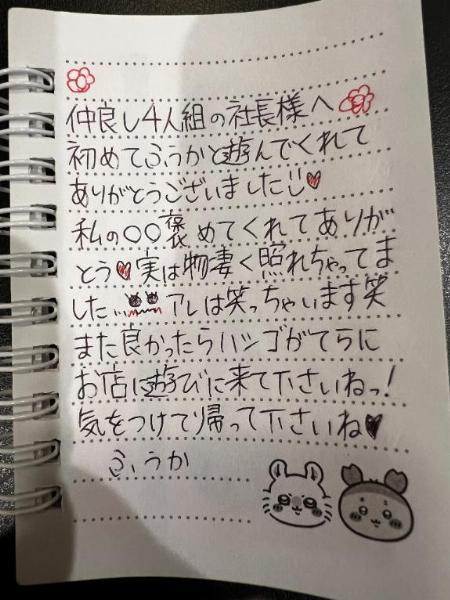 仲良し4人組の社長様へ
初めてふうかと遊んでくれて
ありがとうございました♥
私の〇〇褒めてくれてありが
とう♥実は物凄く照れちゃってま
した… アレは笑っちゃいます笑
また良かったらハシゴがてらに
お店に遊びに来て下さいねっ!
気をつけて帰って下さいね♥
ふうか